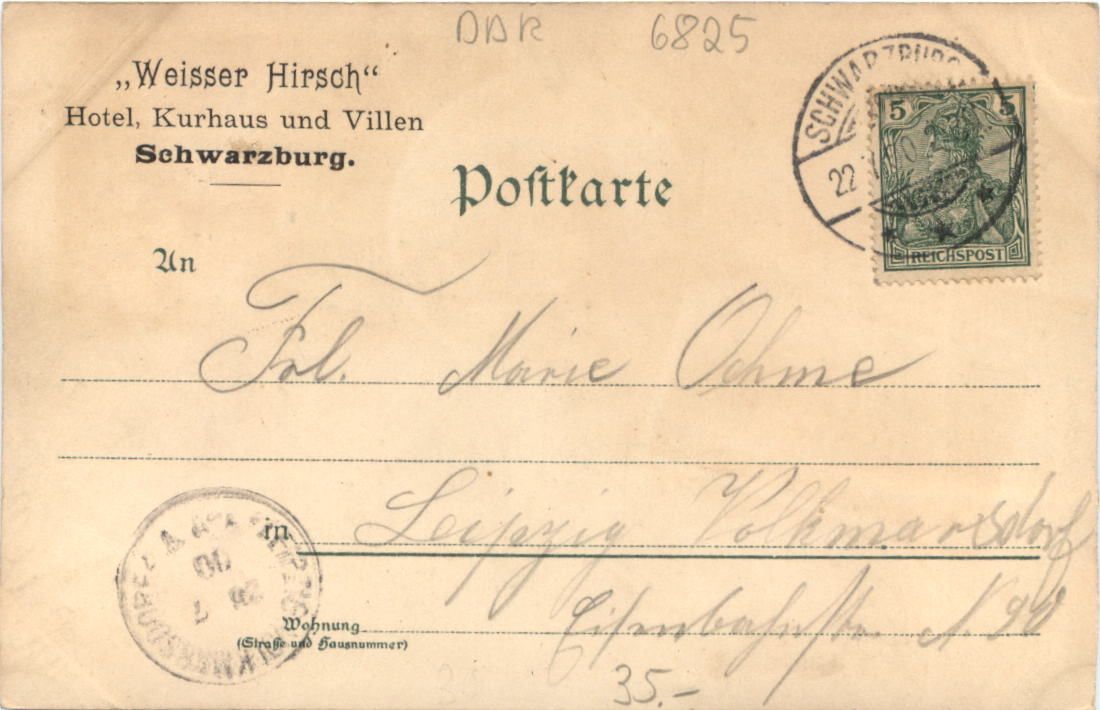 DDR 6825
„Weisser Hirsch“
Hotel, Kurhaus und Villen
Schwarzburg.
Poſtkarte
SCHWARZBURG
22
5 5
REICHSPOST
An
Frl. Marie Oehme
in Leipzig Volkmarsdorf
Wohnung Eisenbahnstr. N.
(Straße und Hausnummer)
LEIPZIG-VOLKMARSDORF
00
7
35.-